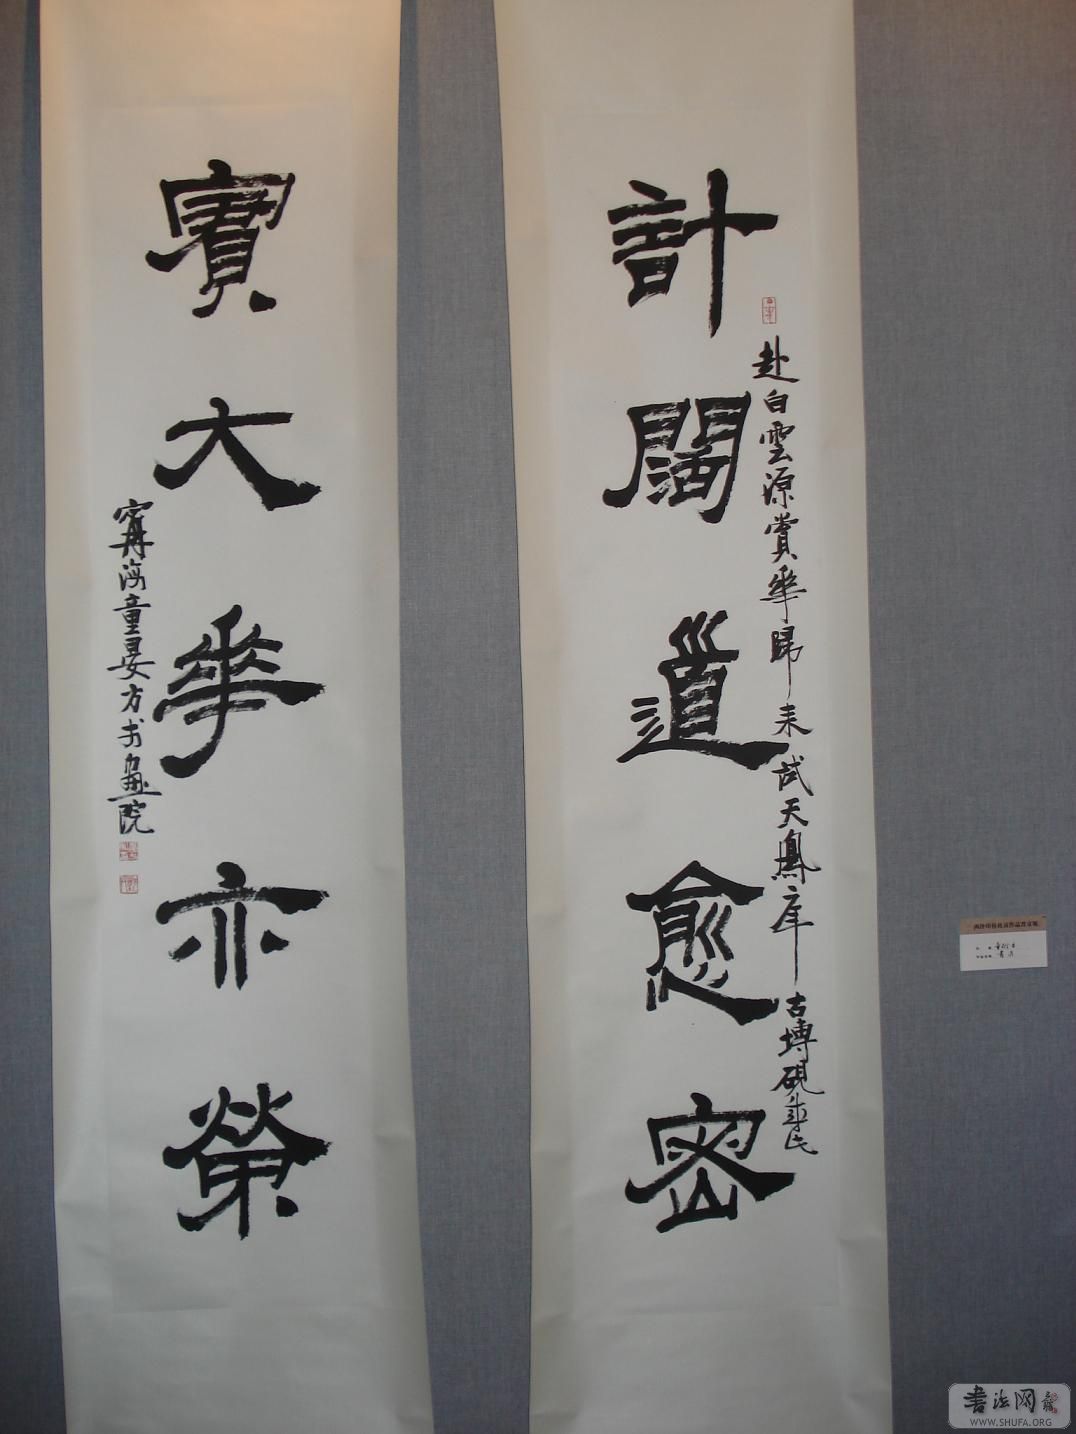 計闊道愈密
赴白雲源賞華歸来試天鳳庫古塼硯華民
實大華亦榮
甯海童晏方书畫院
書法网
WWW.SHUFA.ORG